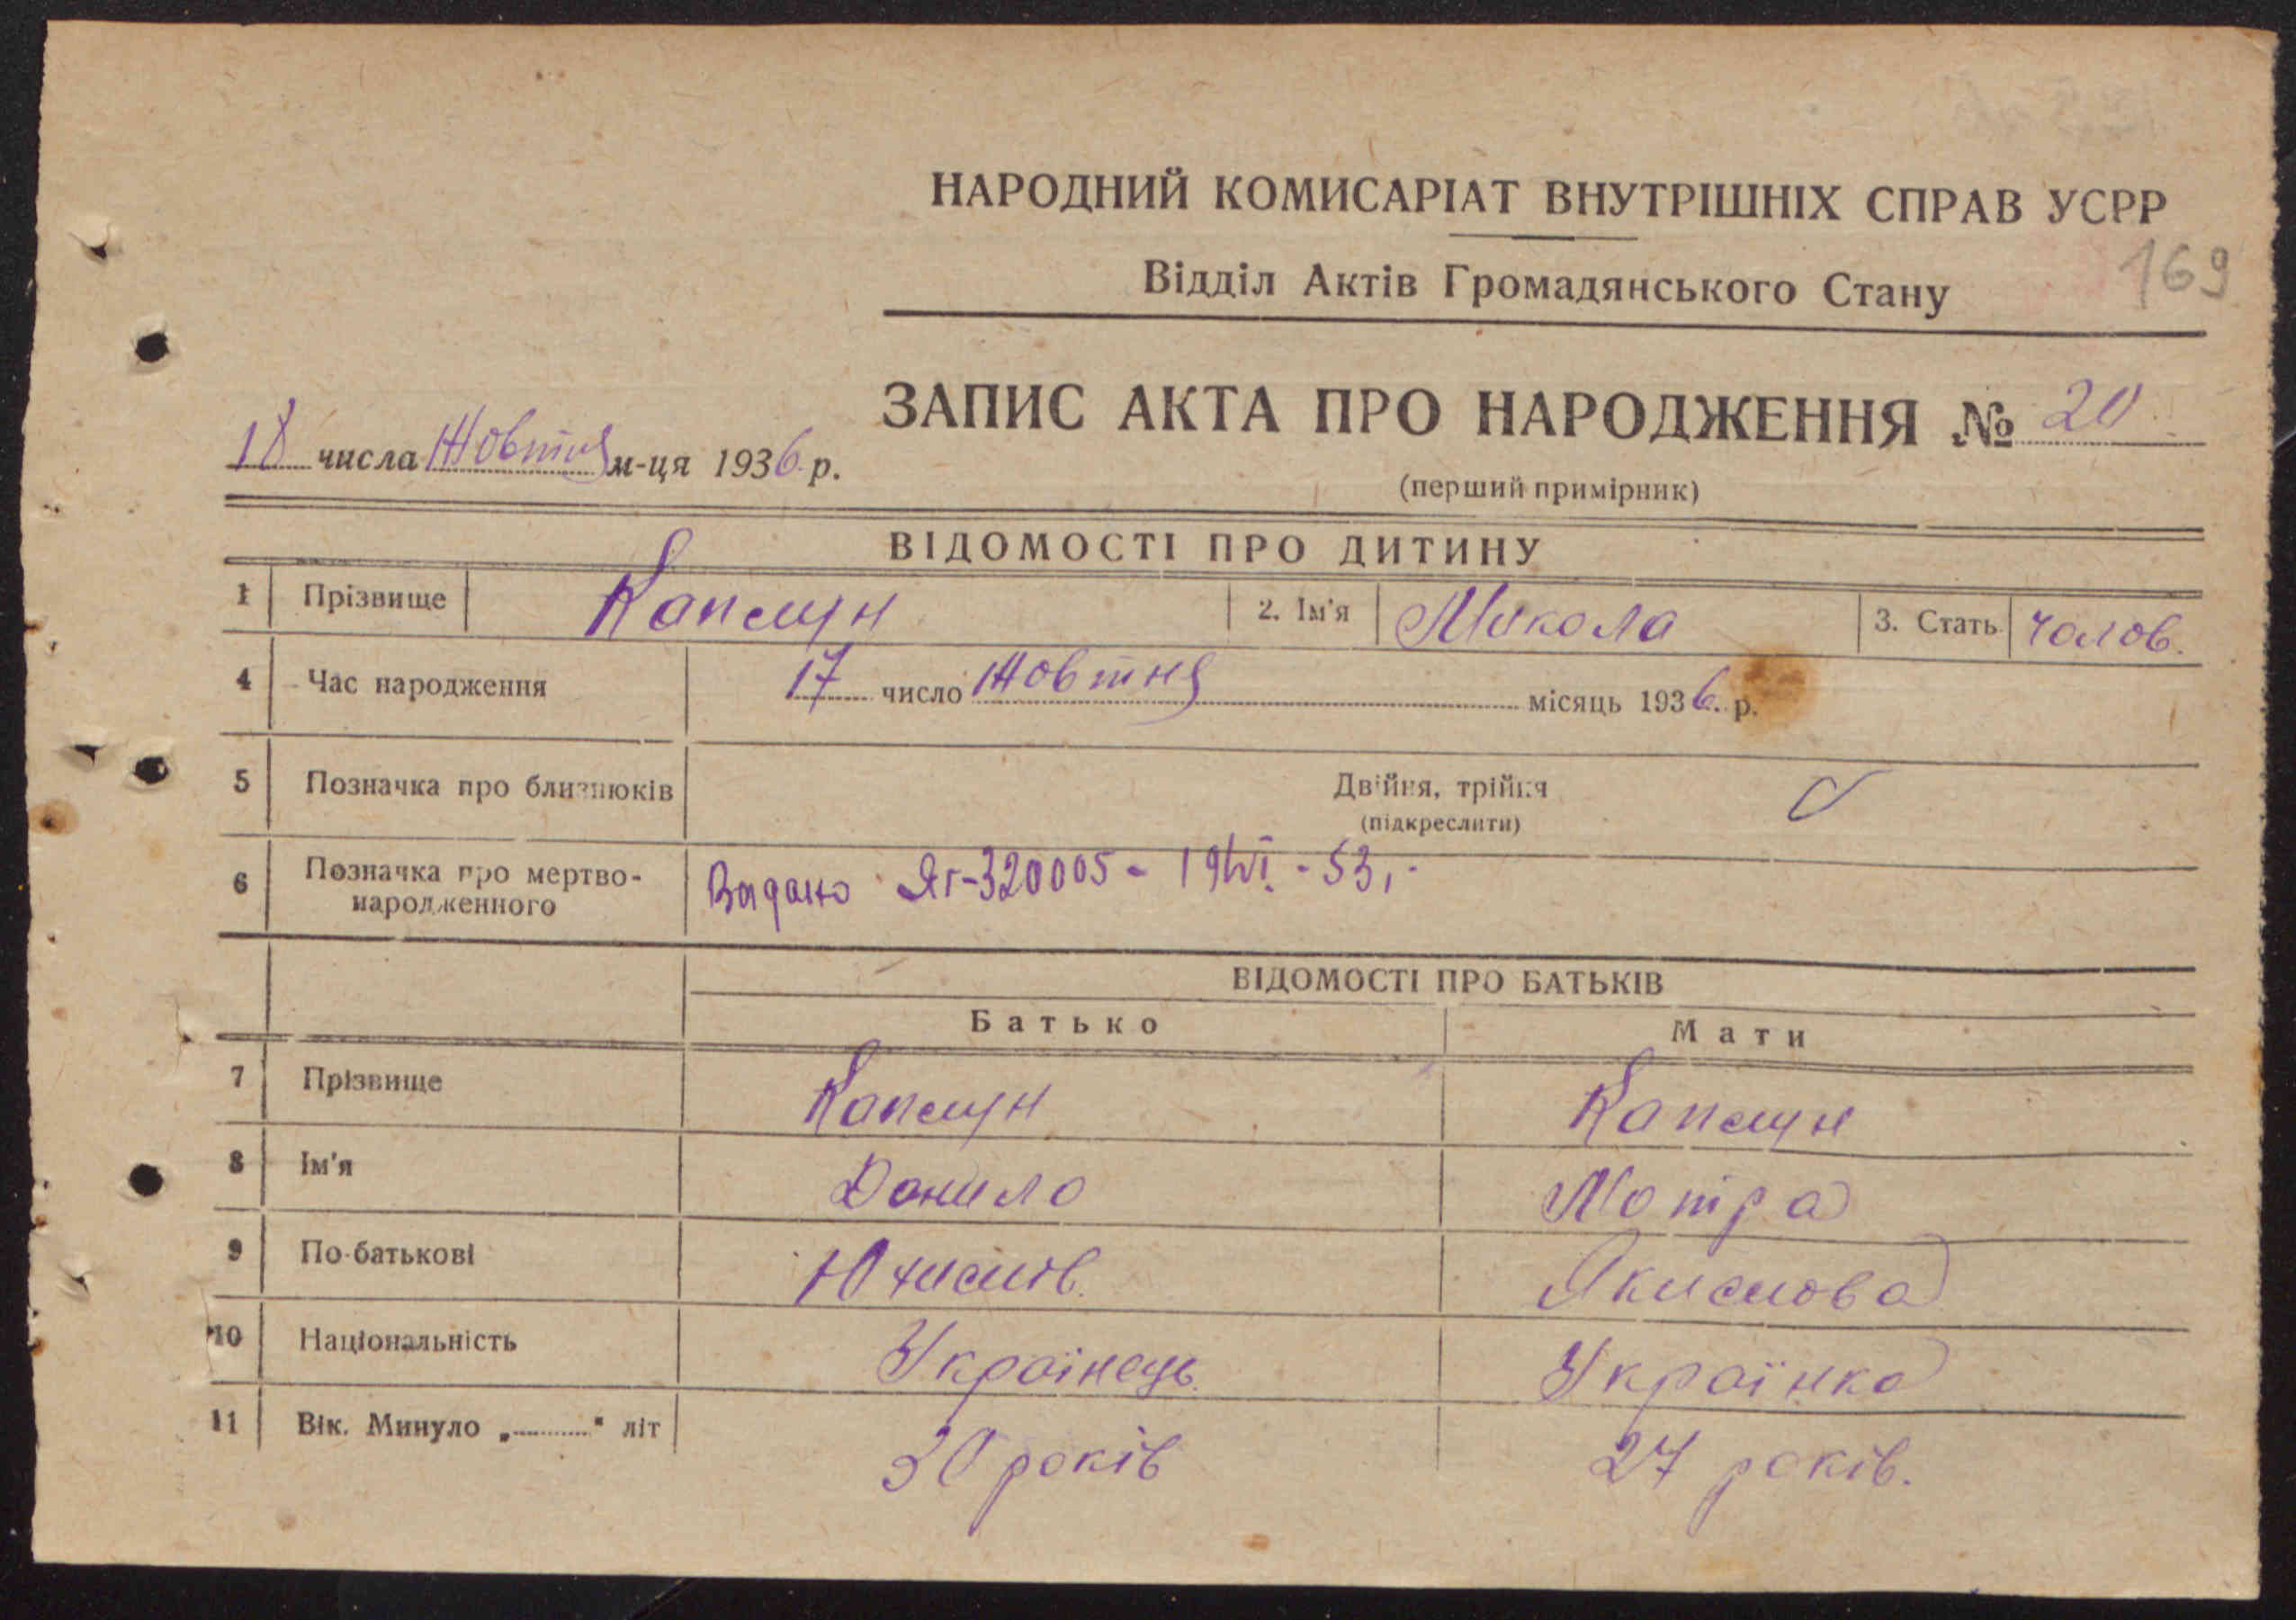 НАРОДНИЙ КОМИСАРІАТ ВНУТРІШНІХ СПРАВ УСРР
Відділ Актів Громадянського Стану
169
ЗАПИС АКТА ПРО НАРОДЖЕННЯ № 20
18 числа Жовтня м-ця 1936 р.
(перший примірник)
ВІДОМОСТІ ПРО ДИТИНУ
1 Прізвище Капшун 2. Ім'я Микола 3. Стать чолов.
4 Час народження 17 число Жовтня місяць 1936. р.
5 Позначка про близнюків Двійня, трійня
(підкреслити)
6 Позначка про мертво-
народженного
Видано Яг-320005 - 19/VI. - 53,-
ВІДОМОСТІ ПРО БАТЬКІВ
Батько Мати
7 Прізвище Капшун Капшун
8 Ім'я Данило Мотра
9 По-батькові Юхимів. Якимова
10 Національність Українець. Українка
11 Вік. Минуло „..........“ літ 30 років 27 років.